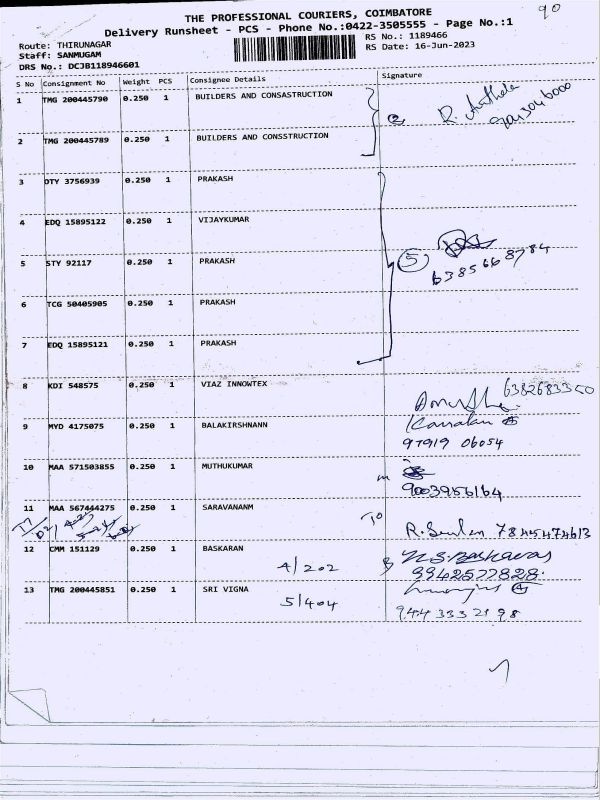 90
THE PROFESSIONAL COURIERS, COIMBATORE
Delivery Runsheet - PCS - Phone No.:0422-3505555 - Page No.:1
Route: THIRUNAGAR
Staff: SANMUGAM
DRS No.: DCJB118946601
RS No.: 1189466
RS Date: 16-Jun-2023
S No Consignment No Weight PCS Consignee Details Signature
1 TMG 200445790 0.250 1 BUILDERS AND CONSASTRUCTION
2
2 TMG 200445789 0.250 1 BUILDERS AND CONSSTRUCTION
3 DTY 3756939 0.250 1 PRAKASH
4 EDQ 15895122 0.250 1 VIJAYKUMAR
5 STY 92117 0.250 1 PRAKASH
5 6385668784
6 TCG 50405905 0.250 1 PRAKASH
7 EDQ 15895121 0.250 1 PRAKASH
8 KDI 548575 0.250 1 VIAZ INNOWTEX
9 MYD 4175075 0.250 1 BALAKIRSHNANN
97919 06054
10 MAA 571503855 0.250 1 MUTHUKUMAR
9003956164
11 MAA 567444275 0.250 1 SARAVANANM
12 CMM 151129 0.250 1 BASKARAN
A/202
N.S. Baskaran
9942577828
13 TMG 200445851 0.250 1 SRI VIGNA
5/404
944 333 21 98